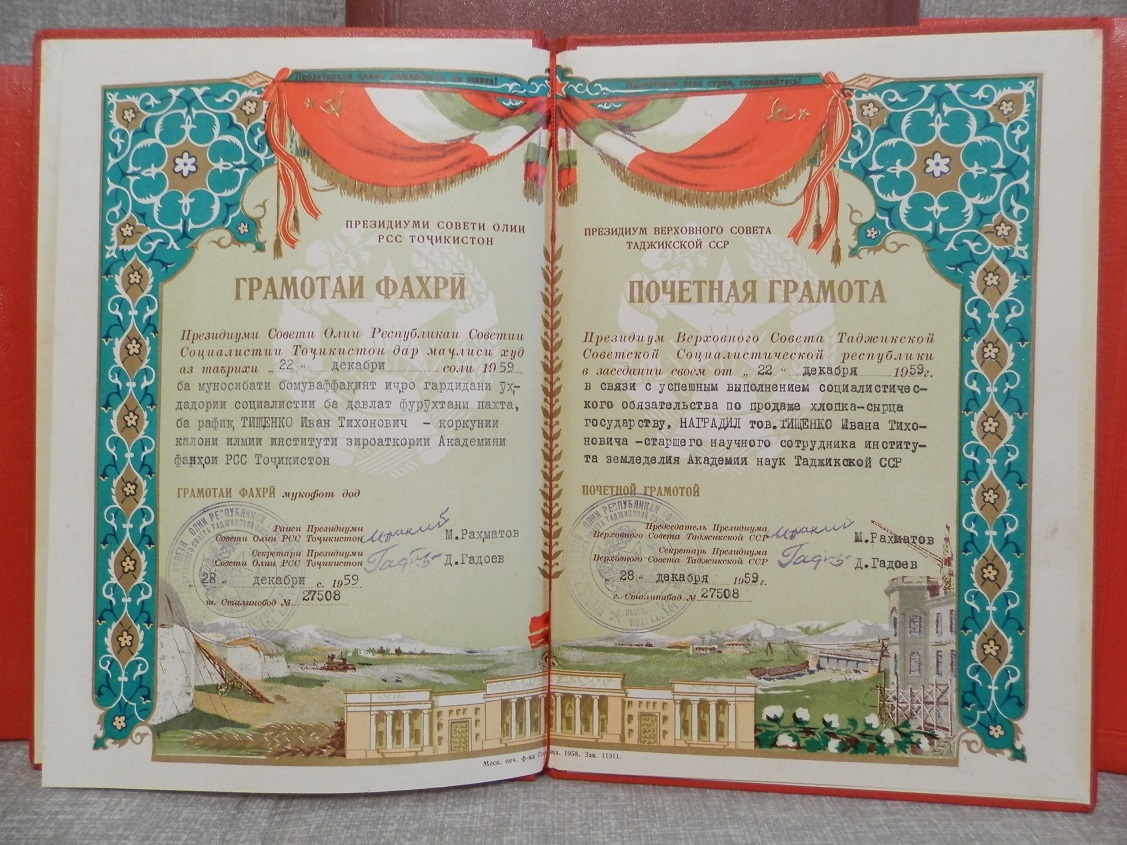 ПРЕЗИДИУМИ СОВЕТИ ОЛИИ
РСС ТОҶИКИСТОН
ГРАМОТАИ ФАХРӢ
Президиуми Совети Олии Республикаи Советии
Социалистии Тоҷикистон дар маҷлиси худ
аз таърихи „22“ декабри соли 1959
ба муносибати бомуваффақият иҷро гардидани ӯҳ-
дадории социалистии ба давлат фурӯхтани пахта,
ба рафиқ ТИЩЕНКО Иван Тихонович - коркунии
калони илмии институти зироаткории Академияи
фанҳои РСС Тоҷикистон
ГРАМОТАИ ФАХРӢ мукофот дод
Раиси Президиуми
Совети Олии РСС Тоҷикистон М.Рахматов
Секретари Президиуми
Совети Олии РСС Тоҷикистон Д.Гадоев
„28“ декабри с. 1959
ш. Сталинобод № 27508
соединяйтесь!
ПРЕЗИДИУМ ВЕРХОВНОГО СОВЕТА
ТАДЖИКСКОЙ ССР
ПОЧЕТНАЯ ГРАМОТА
Президиум Верховного Совета Таджикской
Советской Социалистической республики
в заседании своем от „22“ декабря 1959г.
в связи с успешным выполнением социалистичес-
кого обязательства по продаже хлопка-сырца
государству, НАГРАДИЛ тов.ТИЩЕНКО Ивана Тихо-
новича -старшего научного сотрудника институ-
та земледелия Академии наук Таджикской ССР
ПОЧЕТНОЙ ГРАМОТОЙ
Председатель Президиума
Верховного Совета Таджикской ССР М.Рахматов
Секретарь Президиума
Верховного Совета Таджикской ССР Д.Гадоев
„28“ декабря 1959г.
г. Сталинабад № 27508
Моск. печ. ф-ка 1958. Зак. 11911.